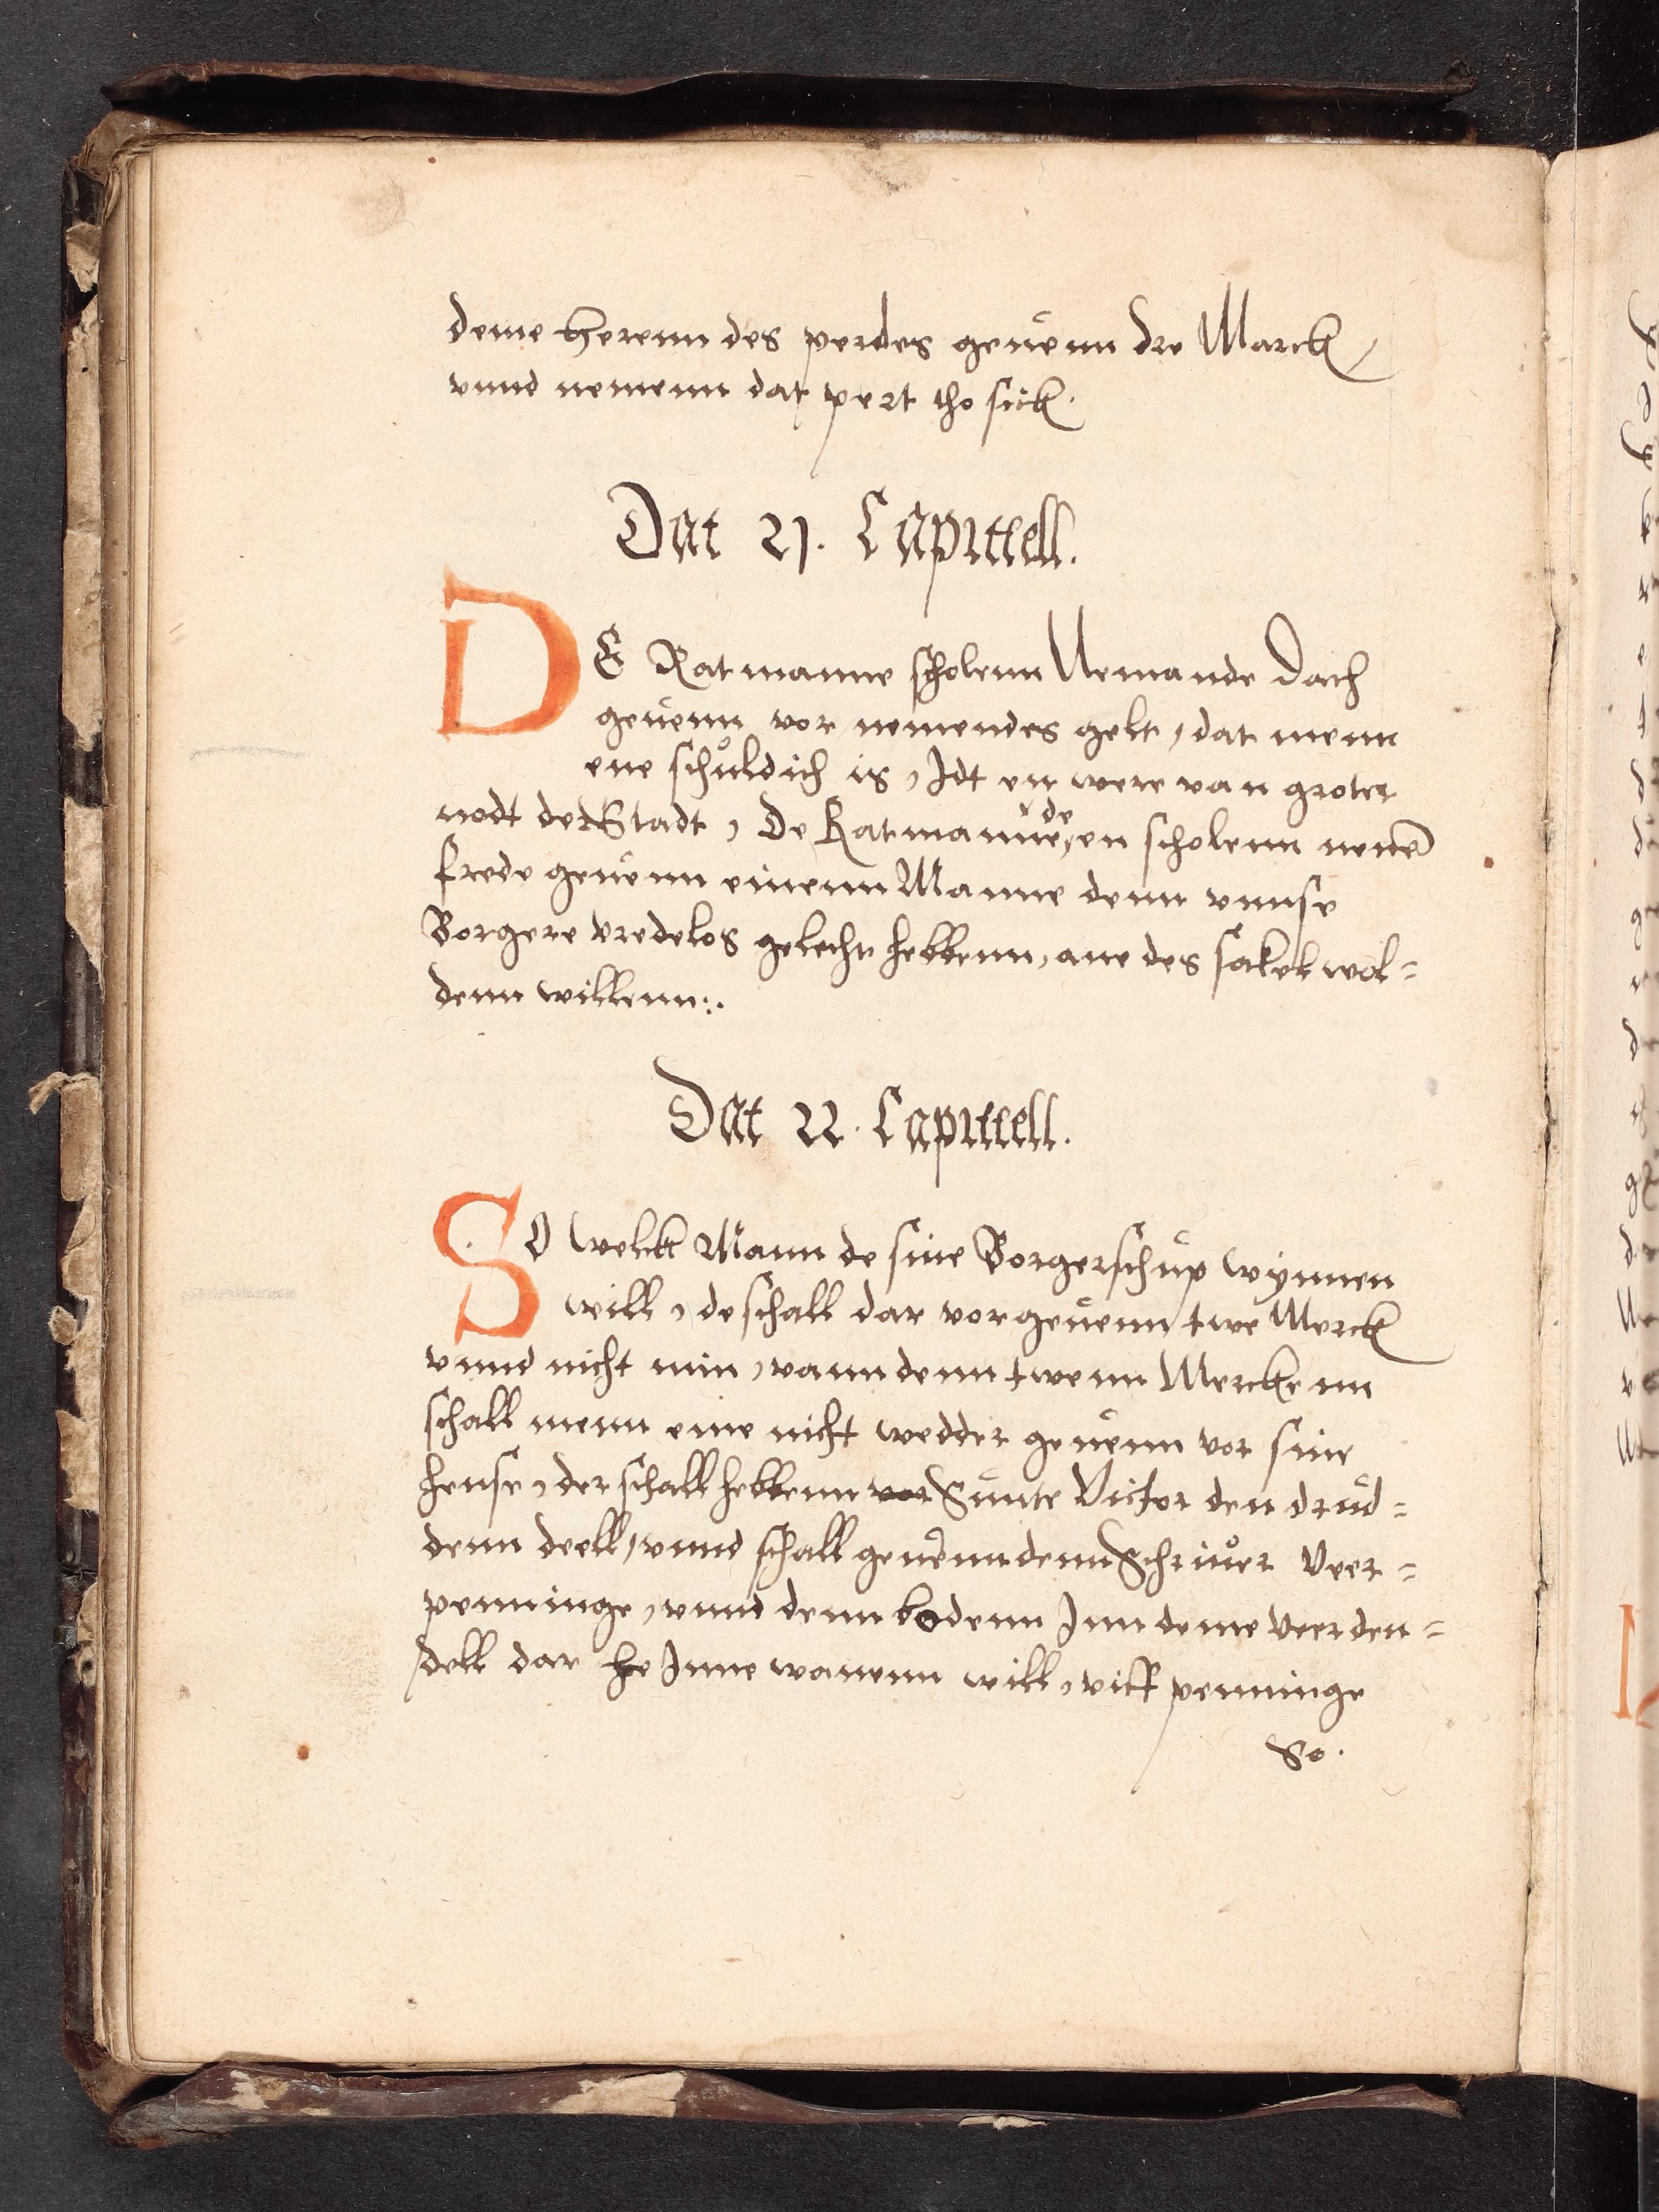 deme herenn des perdes geuenn dre Marck /
vnnd nemenn dat pert tho sick.
Dat 21. Capittell.
DE Ratmanne scholenn Nemande Dach
geuenn vor nemendes gelt, dat menn
eme schuldich is, Idt en were van groter
nodt der Stadt, De Ratmanne, de en scholenn nene
frede geuenn einenn Manne denn vnnse
Borgere vredelos gelecht hebbenn, ane des sakel wol=
denn willenn:.
Dat 22. Capittell.
SO welck Mann de sine Borgerschup wynnen
will, de schall dar vor geuenn twe Merck
vnnd nicht min, vann denn twenn Merckenn
schall menn eme nicht wedder geuenn vor sine
hense, der schall hebbenn vor Sunte Victor den drud=
denn deell, vnnd schall geuenn denn Schriuer Veer=
penninge, vnnd denn bodenn Inn deme Veerden=
dell dar he Inne wanenn will, viff penninge
So.